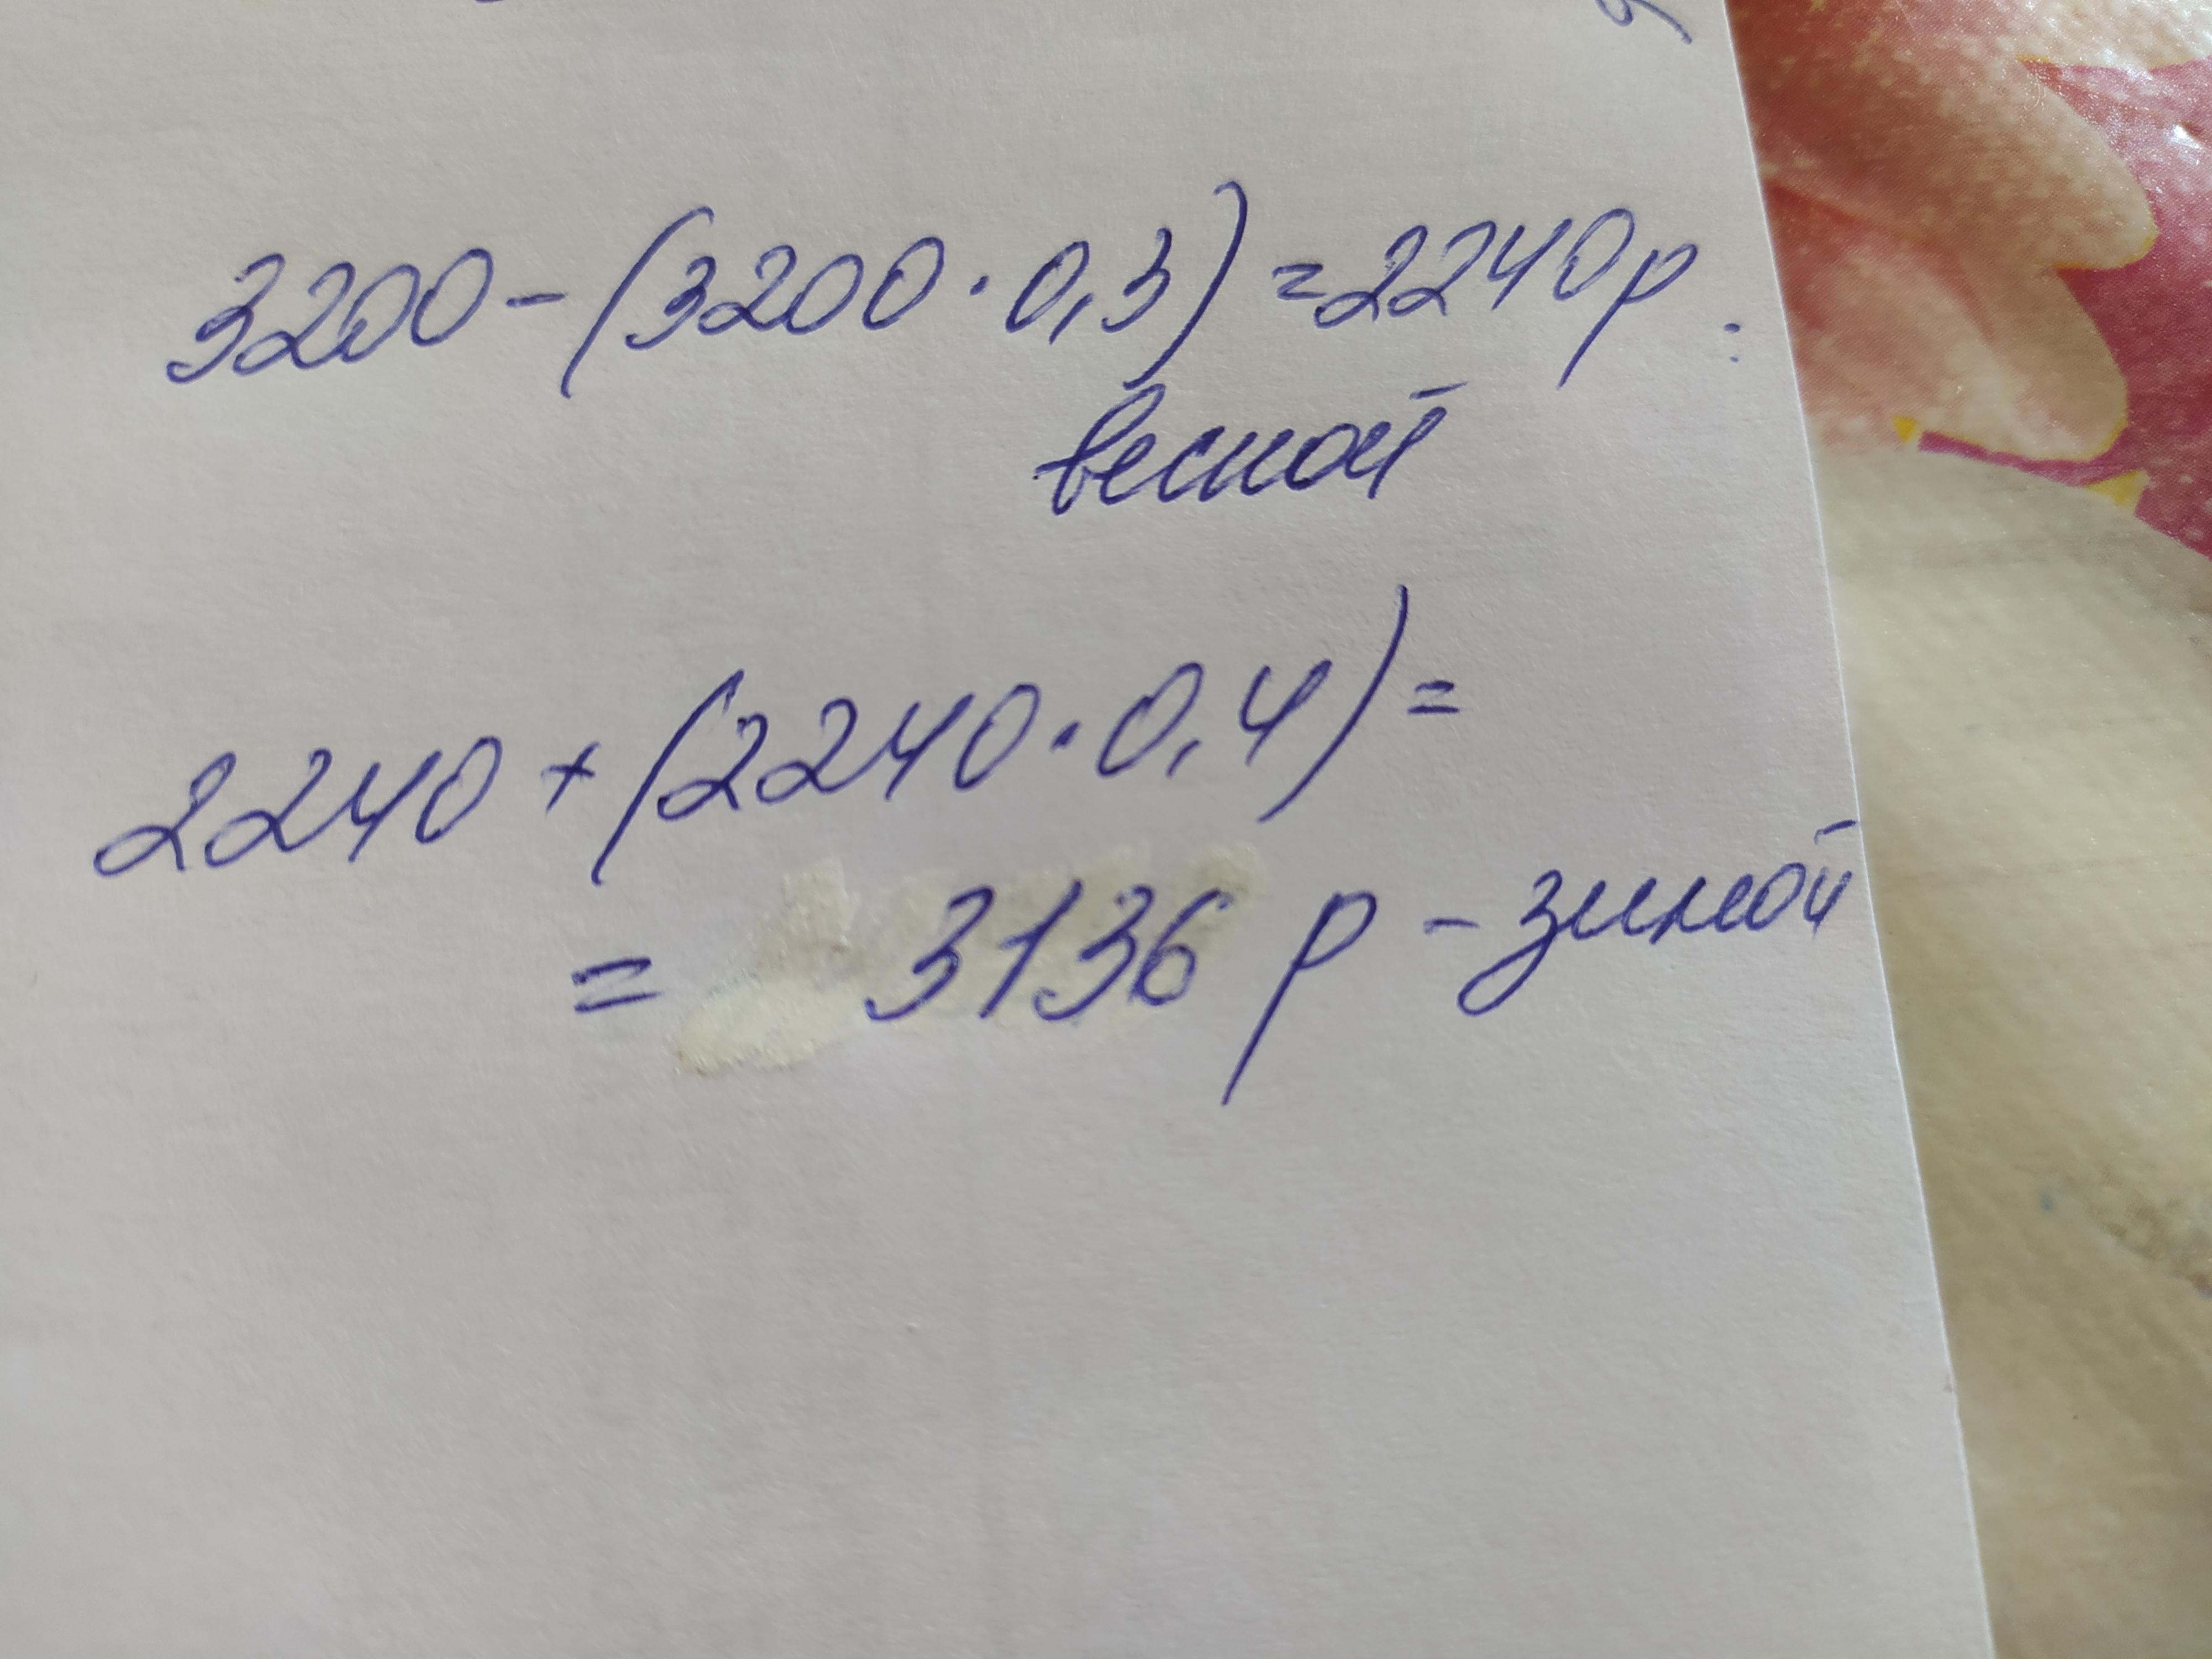 3200-(3200·0,3)=2240р.
весной
2240+(2240·0,4)=
= 3136 р - зимой